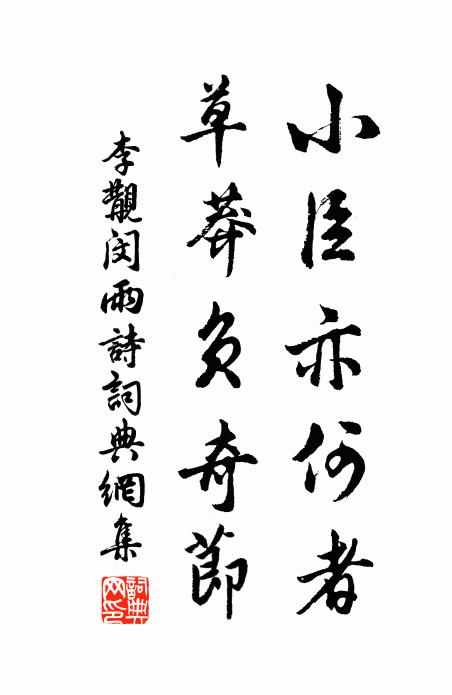 小臣亦何者
草莽負奇節
李觀閔雨詩詞典網集
詞典網印